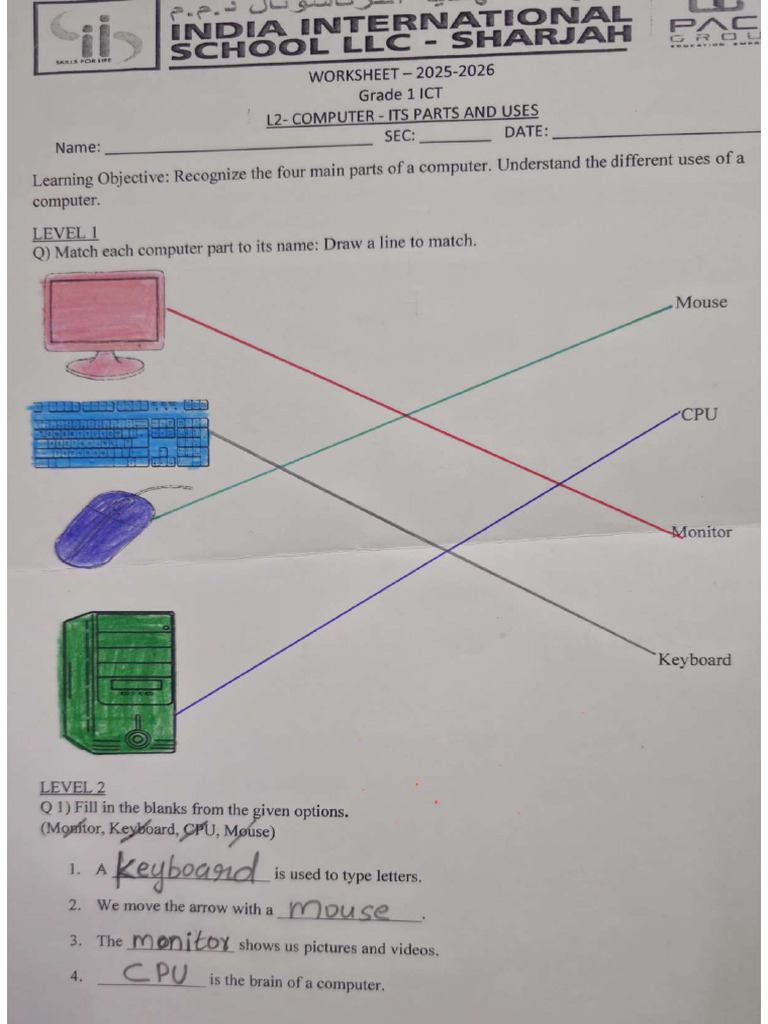 SKILLS FOR LIFE
INDIA INTERNATIONAL
SCHOOL LLC - SHARJAH
WORKSHEET – 2025-2026
Grade 1 ICT
L2- COMPUTER - ITS PARTS AND USES
Name: ____________ SEC: ________ DATE: ____________
Learning Objective: Recognize the four main parts of a computer. Understand the different uses of a
computer.
LEVEL 1
Q) Match each computer part to its name: Draw a line to match.
Mouse
CPU
Monitor
Keyboard
LEVEL 2
Q 1) Fill in the blanks from the given options.
(Monitor, Keyboard, CPU, Mouse)
1. A Keyboard is used to type letters.
2. We move the arrow with a mouse.
3. The monitor shows us pictures and videos.
4. CPU is the brain of a computer.